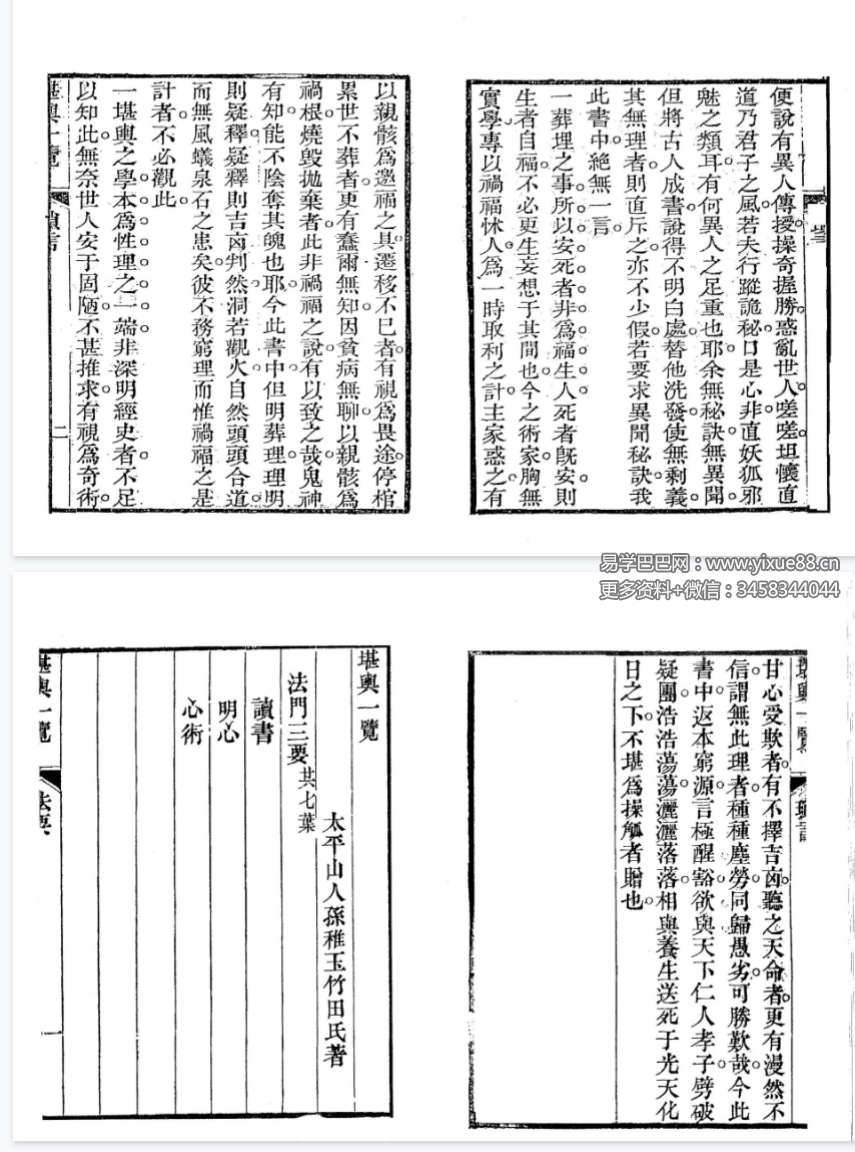 便說有異人傳授操奇握勝惑亂世人嗟嗟坦懷直
道乃君子之風若夫行蹤詭秘口是心非直妖狐邪
魅之類耳有何異人之足重也耶余無秘訣無異聞
但將古人成書說得不明白處替他洗發使無剩義
其無理者則直斥之亦不少假若要求異聞秘訣我
此書中絕無一言
一葬埋之事所以安死者非為福生人死者既安則
生者自福不必更生妄想于其間也今之術家胸無
實學專以禍福怵人為一時取利之計主家惑之有
以親骸為邀福之具遷移不巳者有視為畏途停棺
累世不葬者更有蠢爾無知因貧病無聊以親骸為
禍根燒毀拋棄者此非禍福之說有以致之哉鬼神
有知能不陰奪其魄也耶今此書中但明葬理理明
則疑釋疑釋則吉凶判然洞若觀火自然頭頭合道
而無風蟻泉石之患矣彼不務窮理而惟禍福之是
計者不必觀此
一堪輿之學本為性理之一端非深明經史者不足
以知此無奈世人安于固陋不甚推求有視為奇術
堪輿一覽
二
易学巴巴网：www.yixue88.cn
更多资料+微信：3458344044
甘心受欺者有不擇吉凶聽之天命者更有漫然不
信謂無此理者種種塵勞同歸愚劣可勝歎哉今此
書中返本窮源言極醒豁欲與天下仁人孝子劈破
疑團浩浩蕩蕩灑灑落落相與養生送死于光天化
日之下不堪為操觚者贈也
堪輿一覽
太平山人孫稚玉竹田氏著
法門三要 共七葉
讀書
明心
心術
堪輿一覽
法要
一